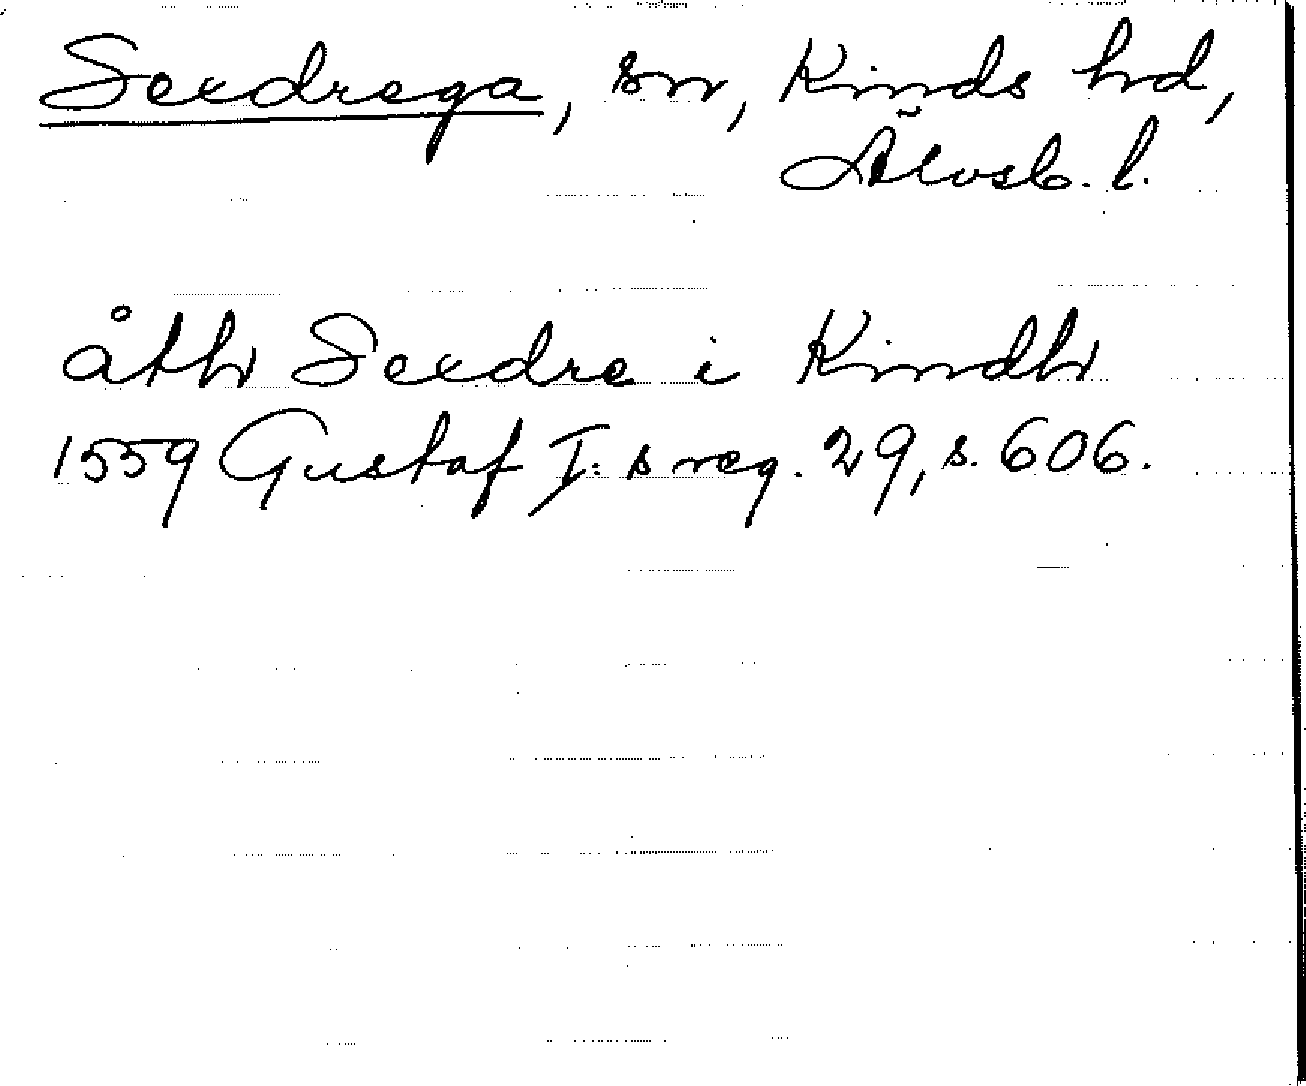 Sexdrega, sn, Kinds hd,
Älvsb. l.
åth Sexdre i Kindh
1559 Gustaf I:s reg. 29, s. 606.